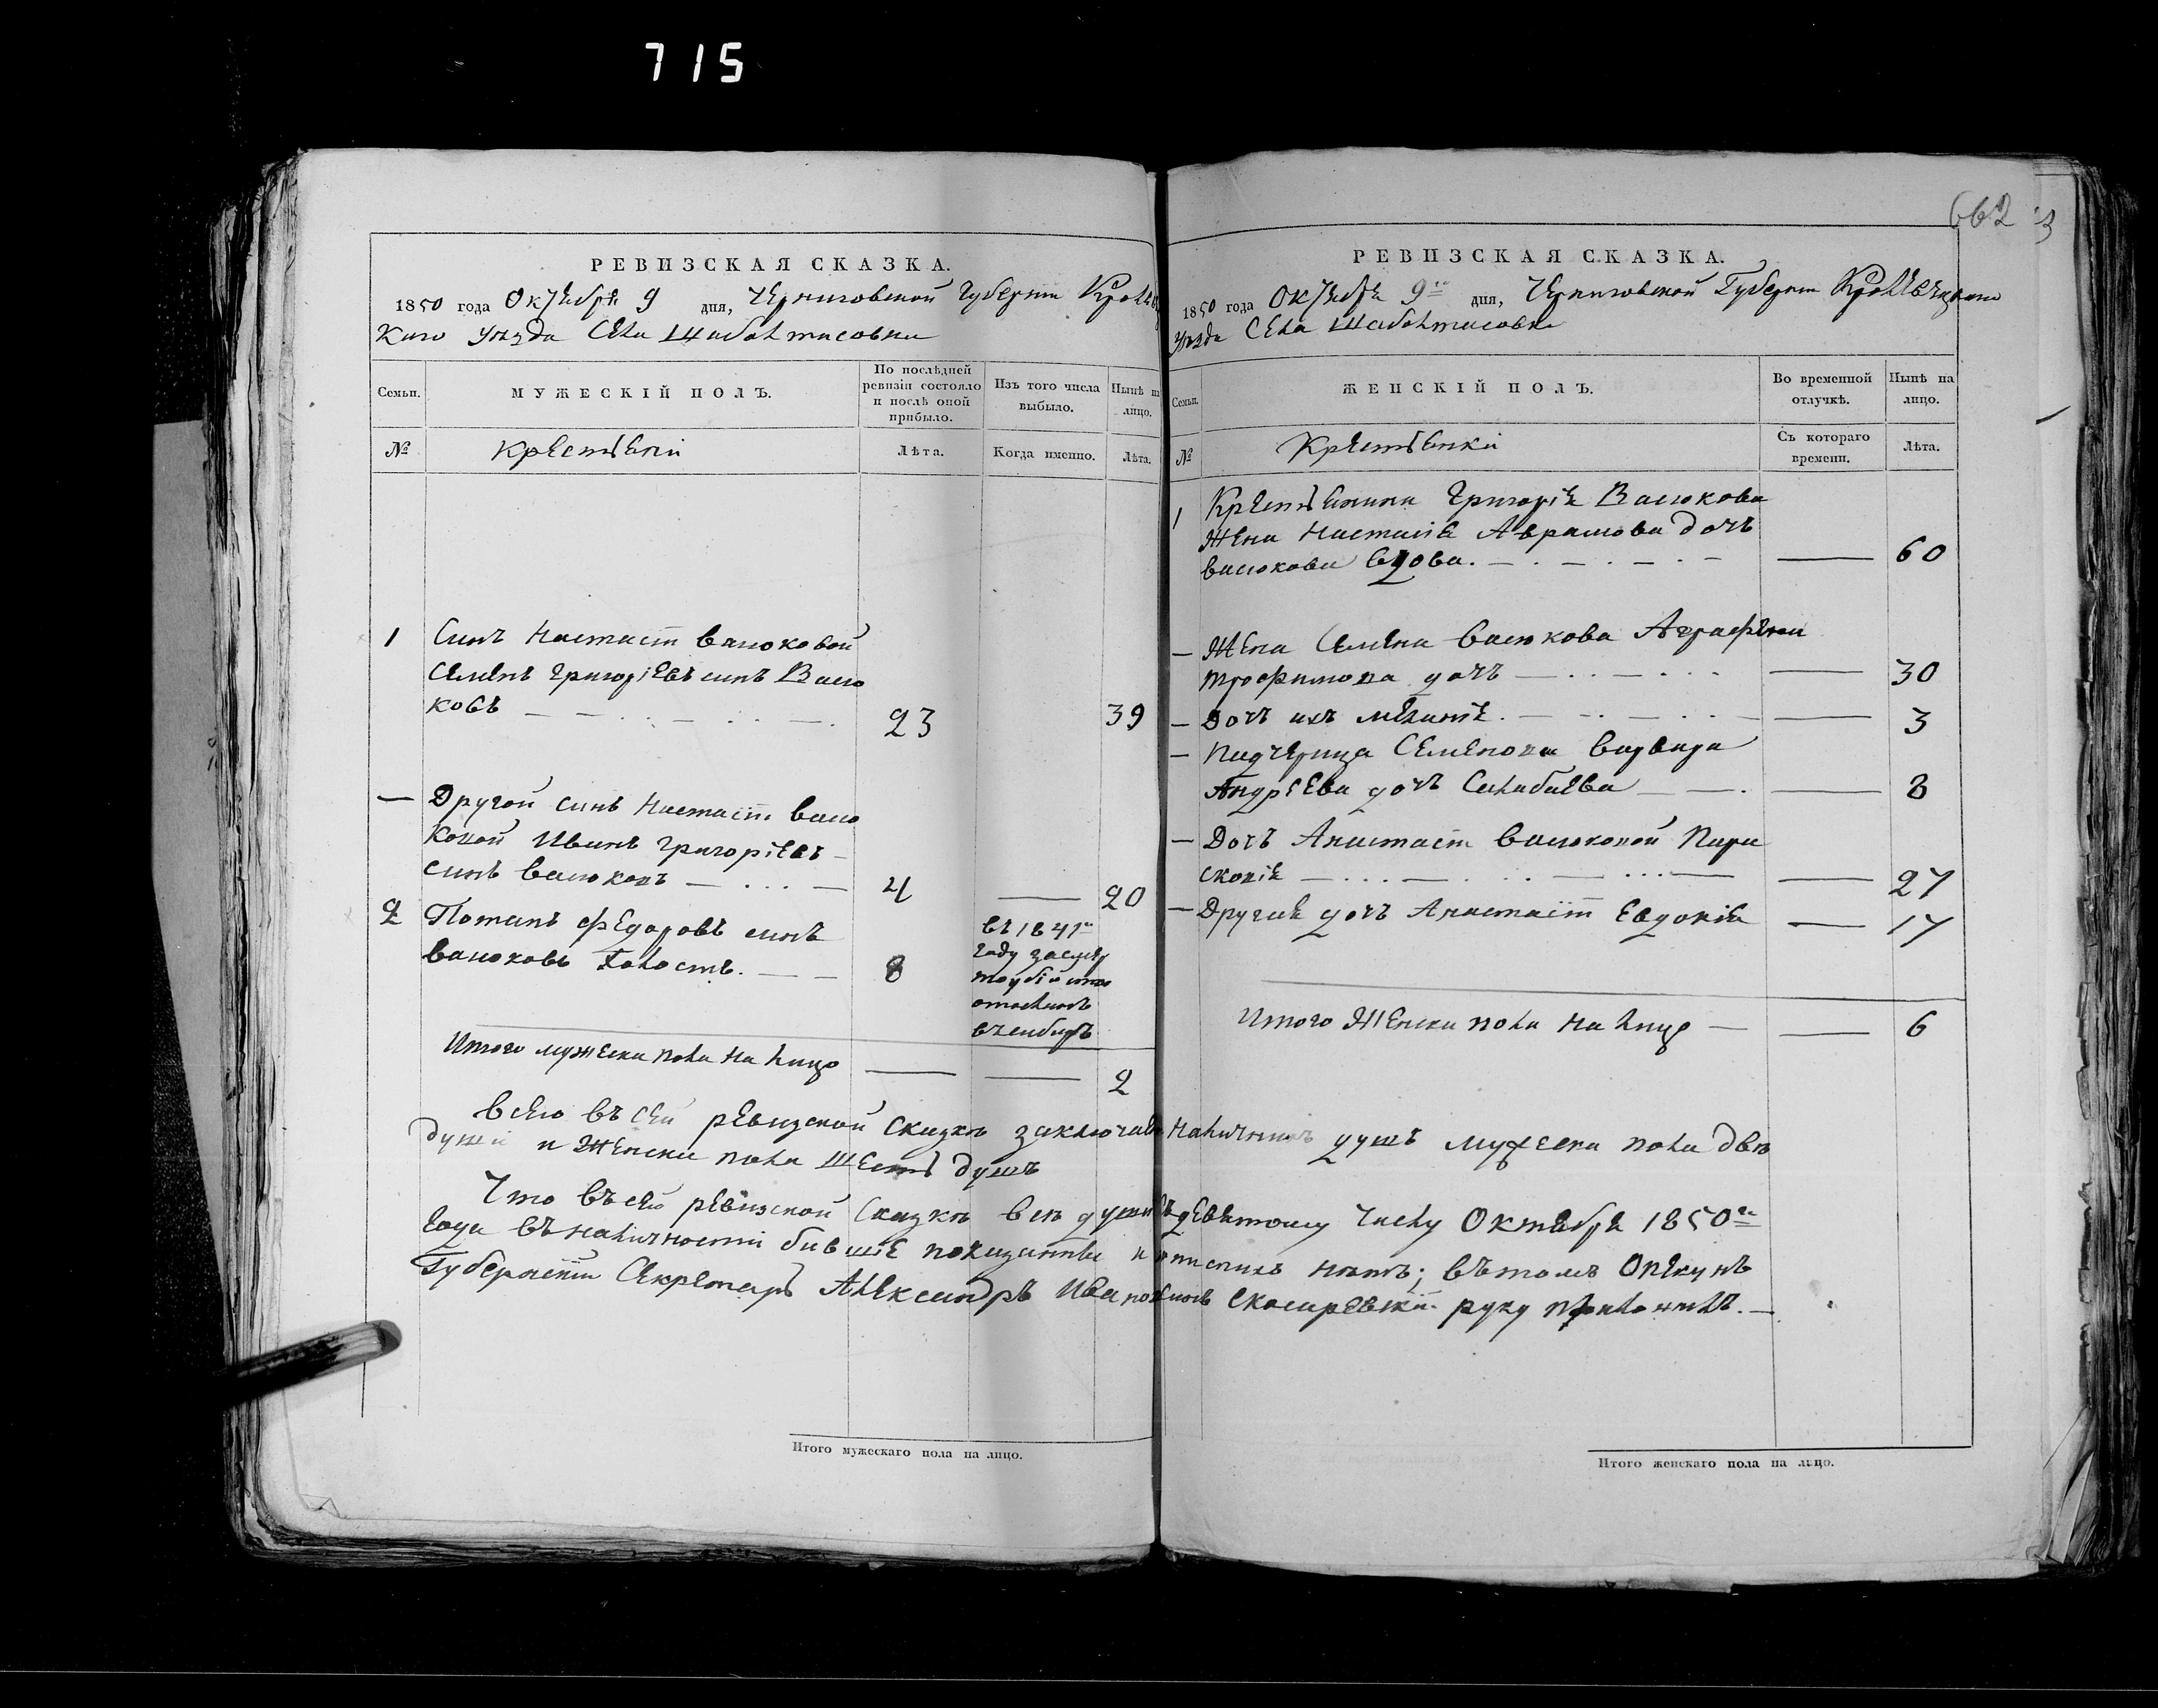 715
662
РЕВИЗСКАЯ СКАЗКА.
1850 года Октября 9 дня, Черниговской Губерніи Кролевец
каго уезда Села Шабалтасовки
Семьи. МУЖЕСКІЙ ПОЛЪ. По послѣдней ревизіи состояло и послѣ оной прибыло. Изъ того числа выбыло. Нынѣ на лицо.
№ Крестьяни Лѣта. Когда именно. Лѣта.
1 Синъ Настасіи Васюковой
Семенъ Григоріевъ синъ Васю
ковъ 23 39
— Другой синъ Настасіи Васю
ковой Иванъ Григоріевъ
синъ Васюковъ 4 — 20
2 Потапъ Федоровъ синъ
Васюковъ Холостъ. 8
въ 1841го
году
отосланъ
въ сибирь
Итого мужеска пола на лицо — — 2
РЕВИЗСКАЯ СКАЗКА.
1850 года Октября 9го дня, Черниговской Губерніи Кролевецкаго
уезда Села Шабалтасовки
Семьи. ЖЕНСКІЙ ПОЛЪ. Во временной отлучкѣ. Нынѣ на лицо.
№ Крестьянки Съ котораго времени. Лѣта.
1 Крестьянина Григорія Васюкова
Жена Настасія Аврамова дочъ
Васюкова вдова. — 60
— Жена Семена Васюкова Аграфена
Трофимова дочъ — 30
— Дочъ ихъ Меланія. — 3
— Падчерица Семенова Варвара
Андреева дочъ — 8
— Дочъ Анастасіи Васюковой Пара
сковія — 27
— Другая дочъ Анастасіи Евдокія — 17
Итого Женска пола на лицо — — 6
Всего въ сей ревизской сказкѣ заключается наличныхъ душъ мужеска пола двѣ
души и Женска пола шесть душъ
Что въ сей ревизской сказкѣ всѣ души къ девятому числу Октября 1850го
года въ наличности бывшіе показанны и прописныхъ нѣтъ; въ томъ Опекунъ
Губернскій Секретарь Александръ Ивановъ синъ руку приложилъ.
Итого мужескаго пола на лицо.
Итого женскаго пола на лицо.